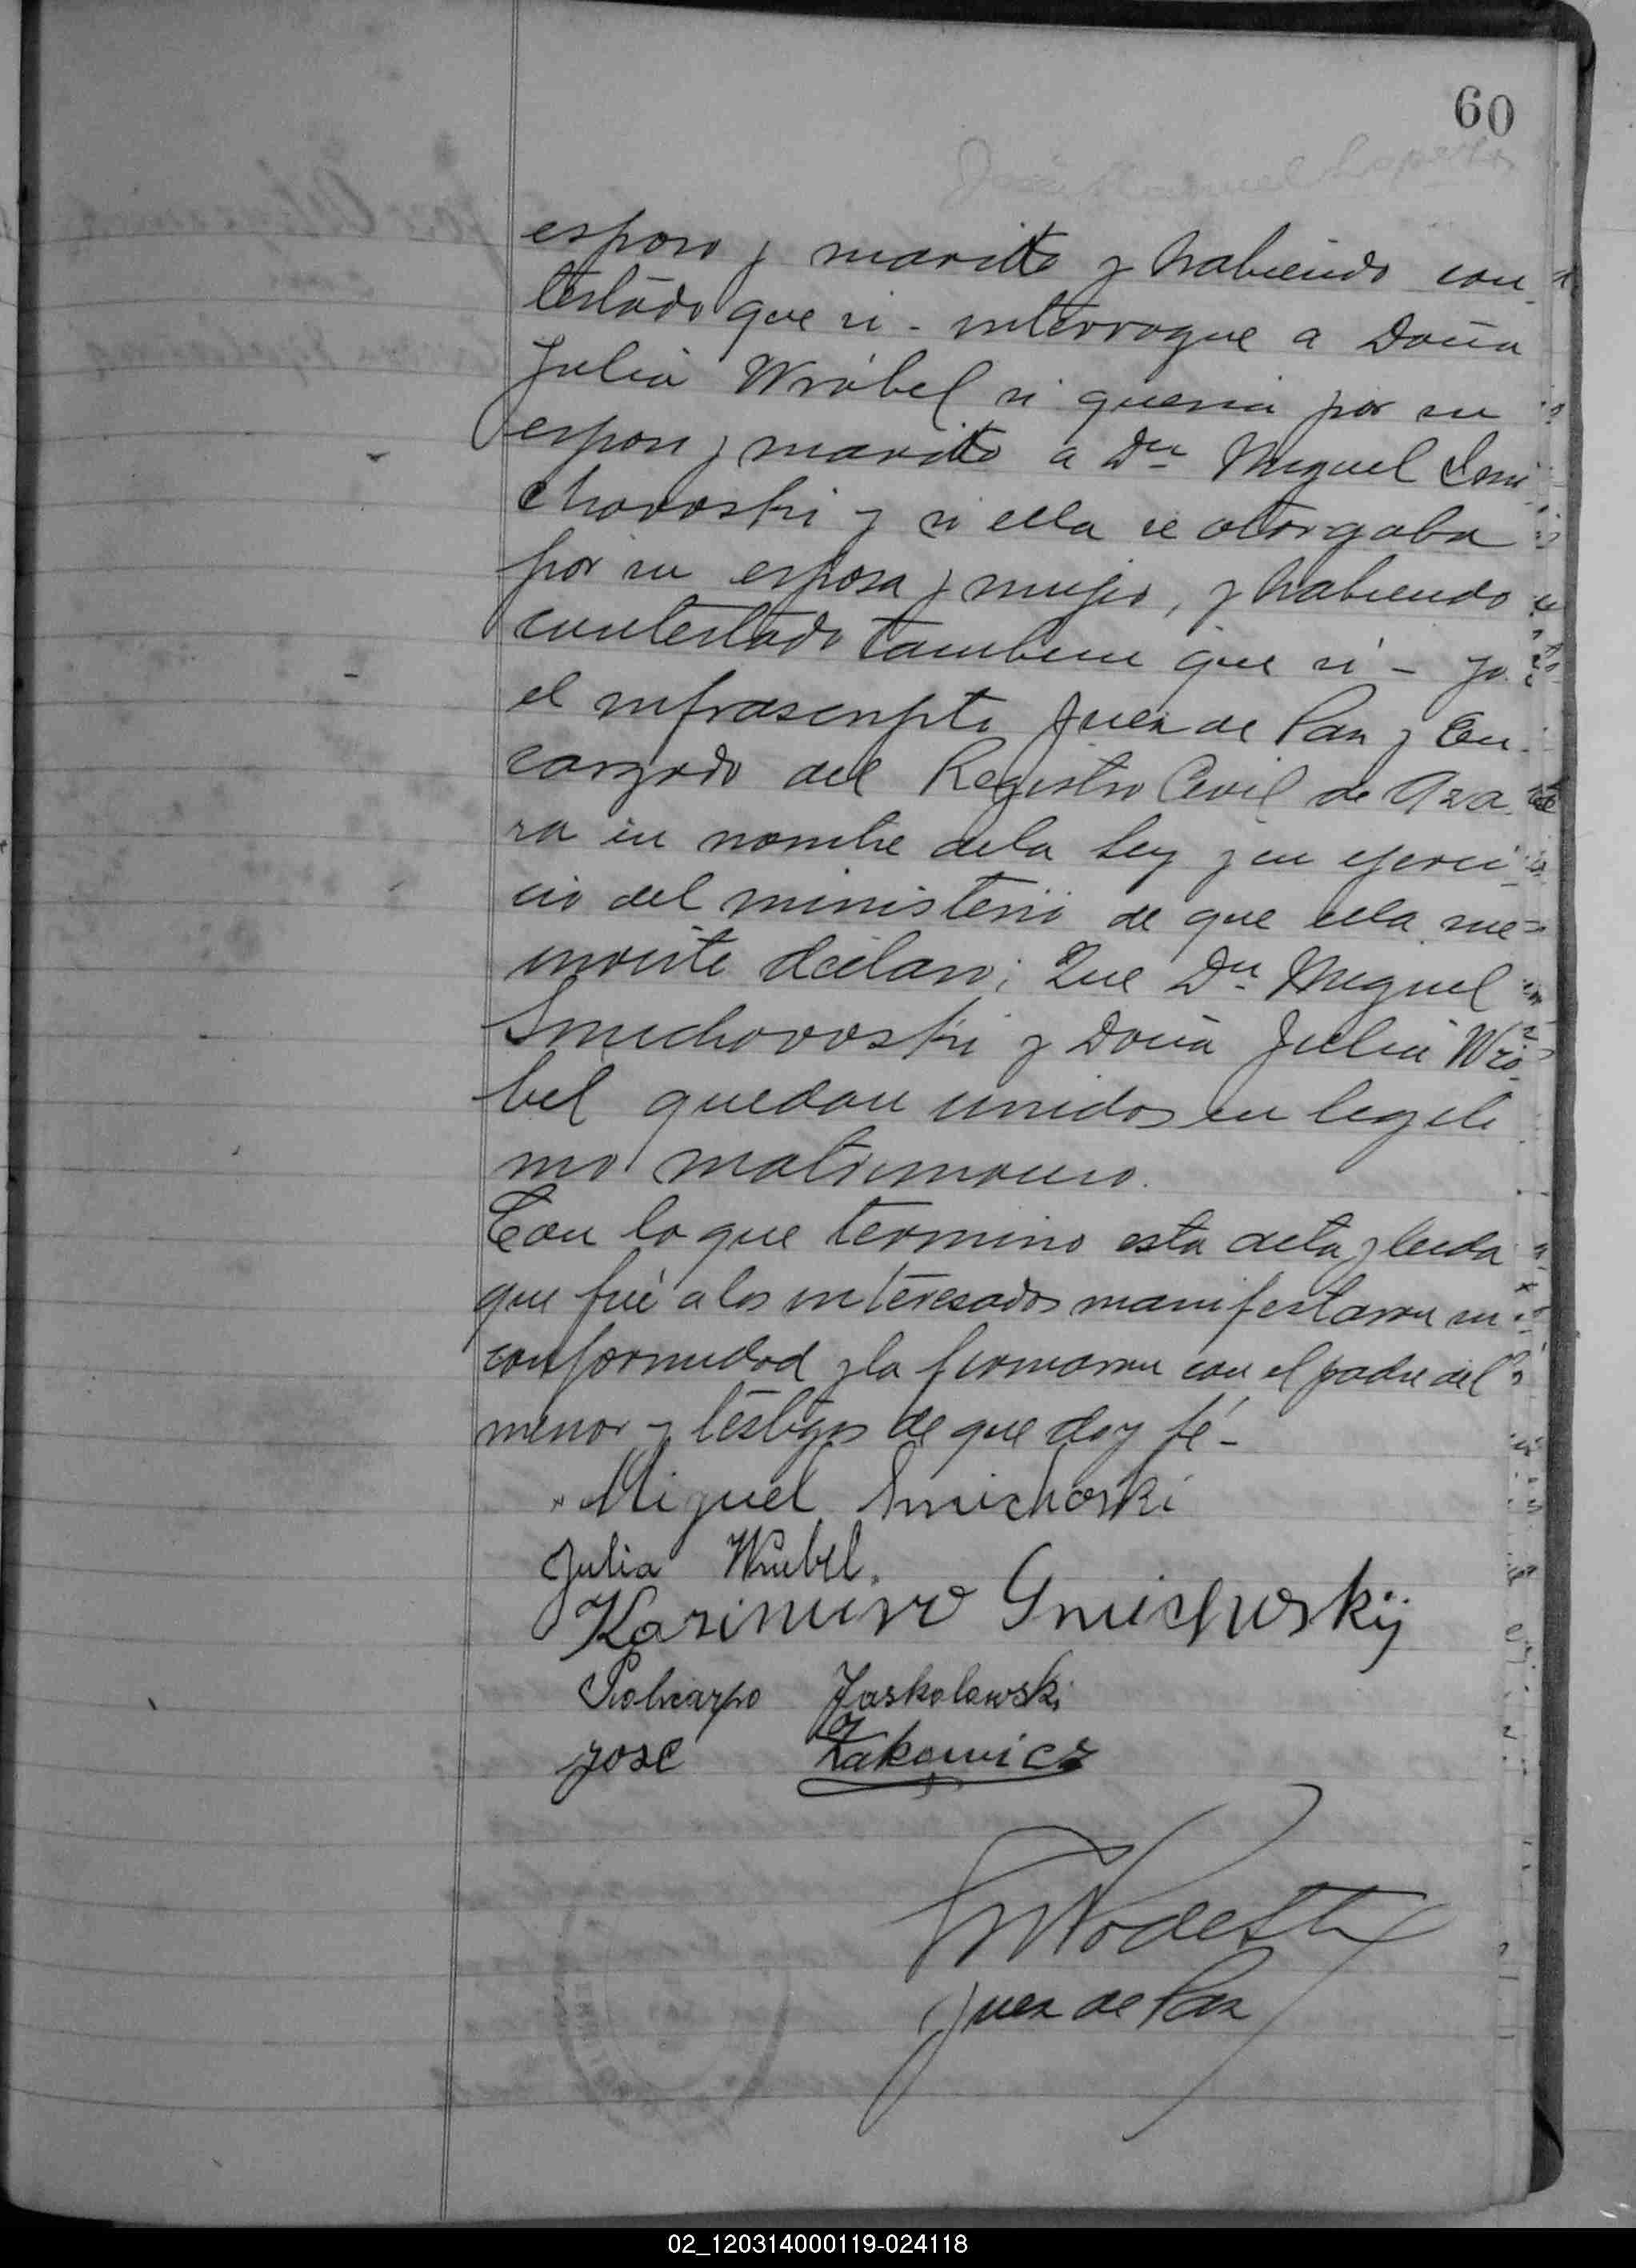 60
esposo y marido y habiendo con
testado que si - interrogue a Doña
Julia Wrobel si queria por su
esposo y marido a Dn Miguel Smi
chovoski y si ella se otorgaba
por su esposa y mujer, y habiendo
contestado tambien que si - yo
el infrascripto Juez de Paz y En-
cargado del Registro Civil de Aza
ra en nombre de la Ley y en ejerci
cio del ministerio de que ella me
inviste declaro; Que Dn Miguel
Smichovoski y Doña Julia Wro
bel quedan unidos en legiti
mo matrimonio.
Con lo que termino esta acta y leida
que fué a los interesados manifestaron su
conformidad y la firmaron con el padre del
menor y testigos de que doy fé -
Miguel Smichoski
Julia Wrubel.
Kazimiro Smichoskij
Policarpo Jaskolowski
José Zakowicz
Juez de Paz
02_120314000119-024118